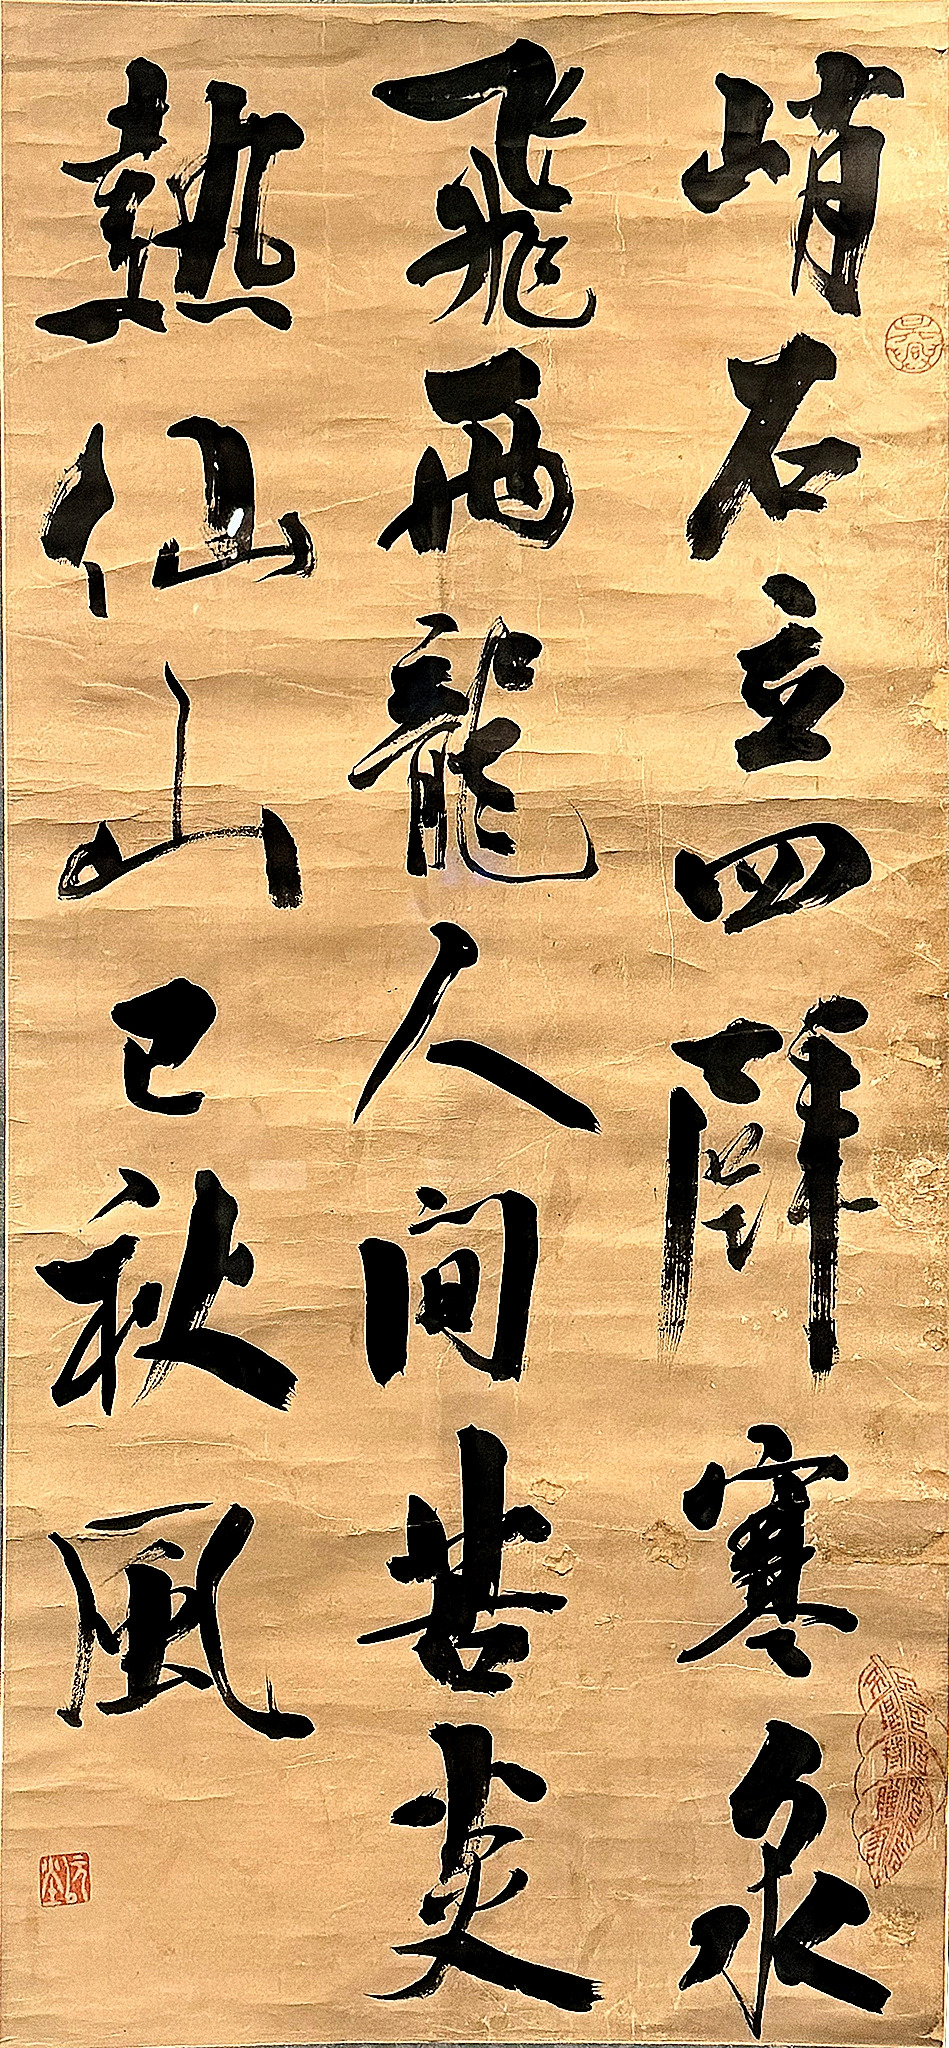 峭石立四壁寒泉
飛兩龍人間苦炎
熱仙山已秋風